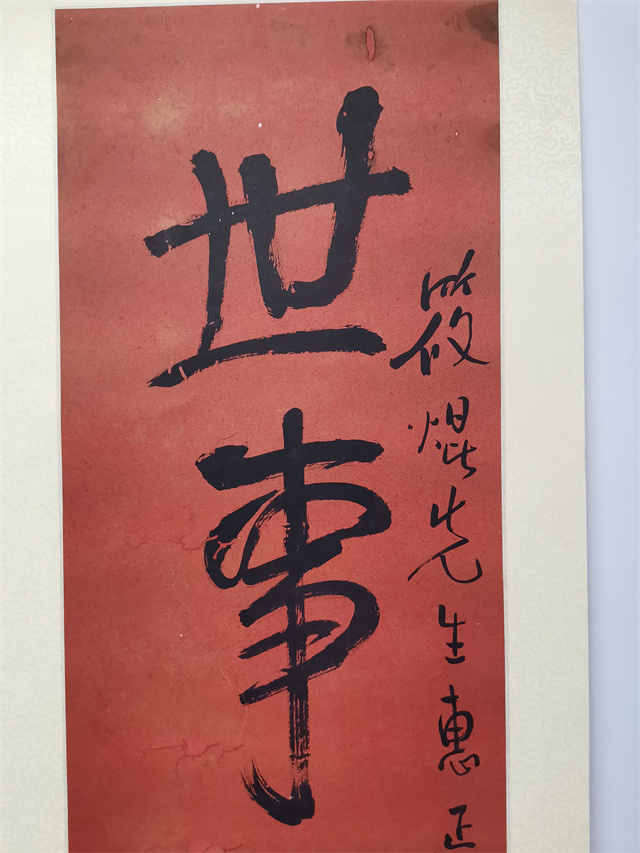 筱焜先生惠正
世事